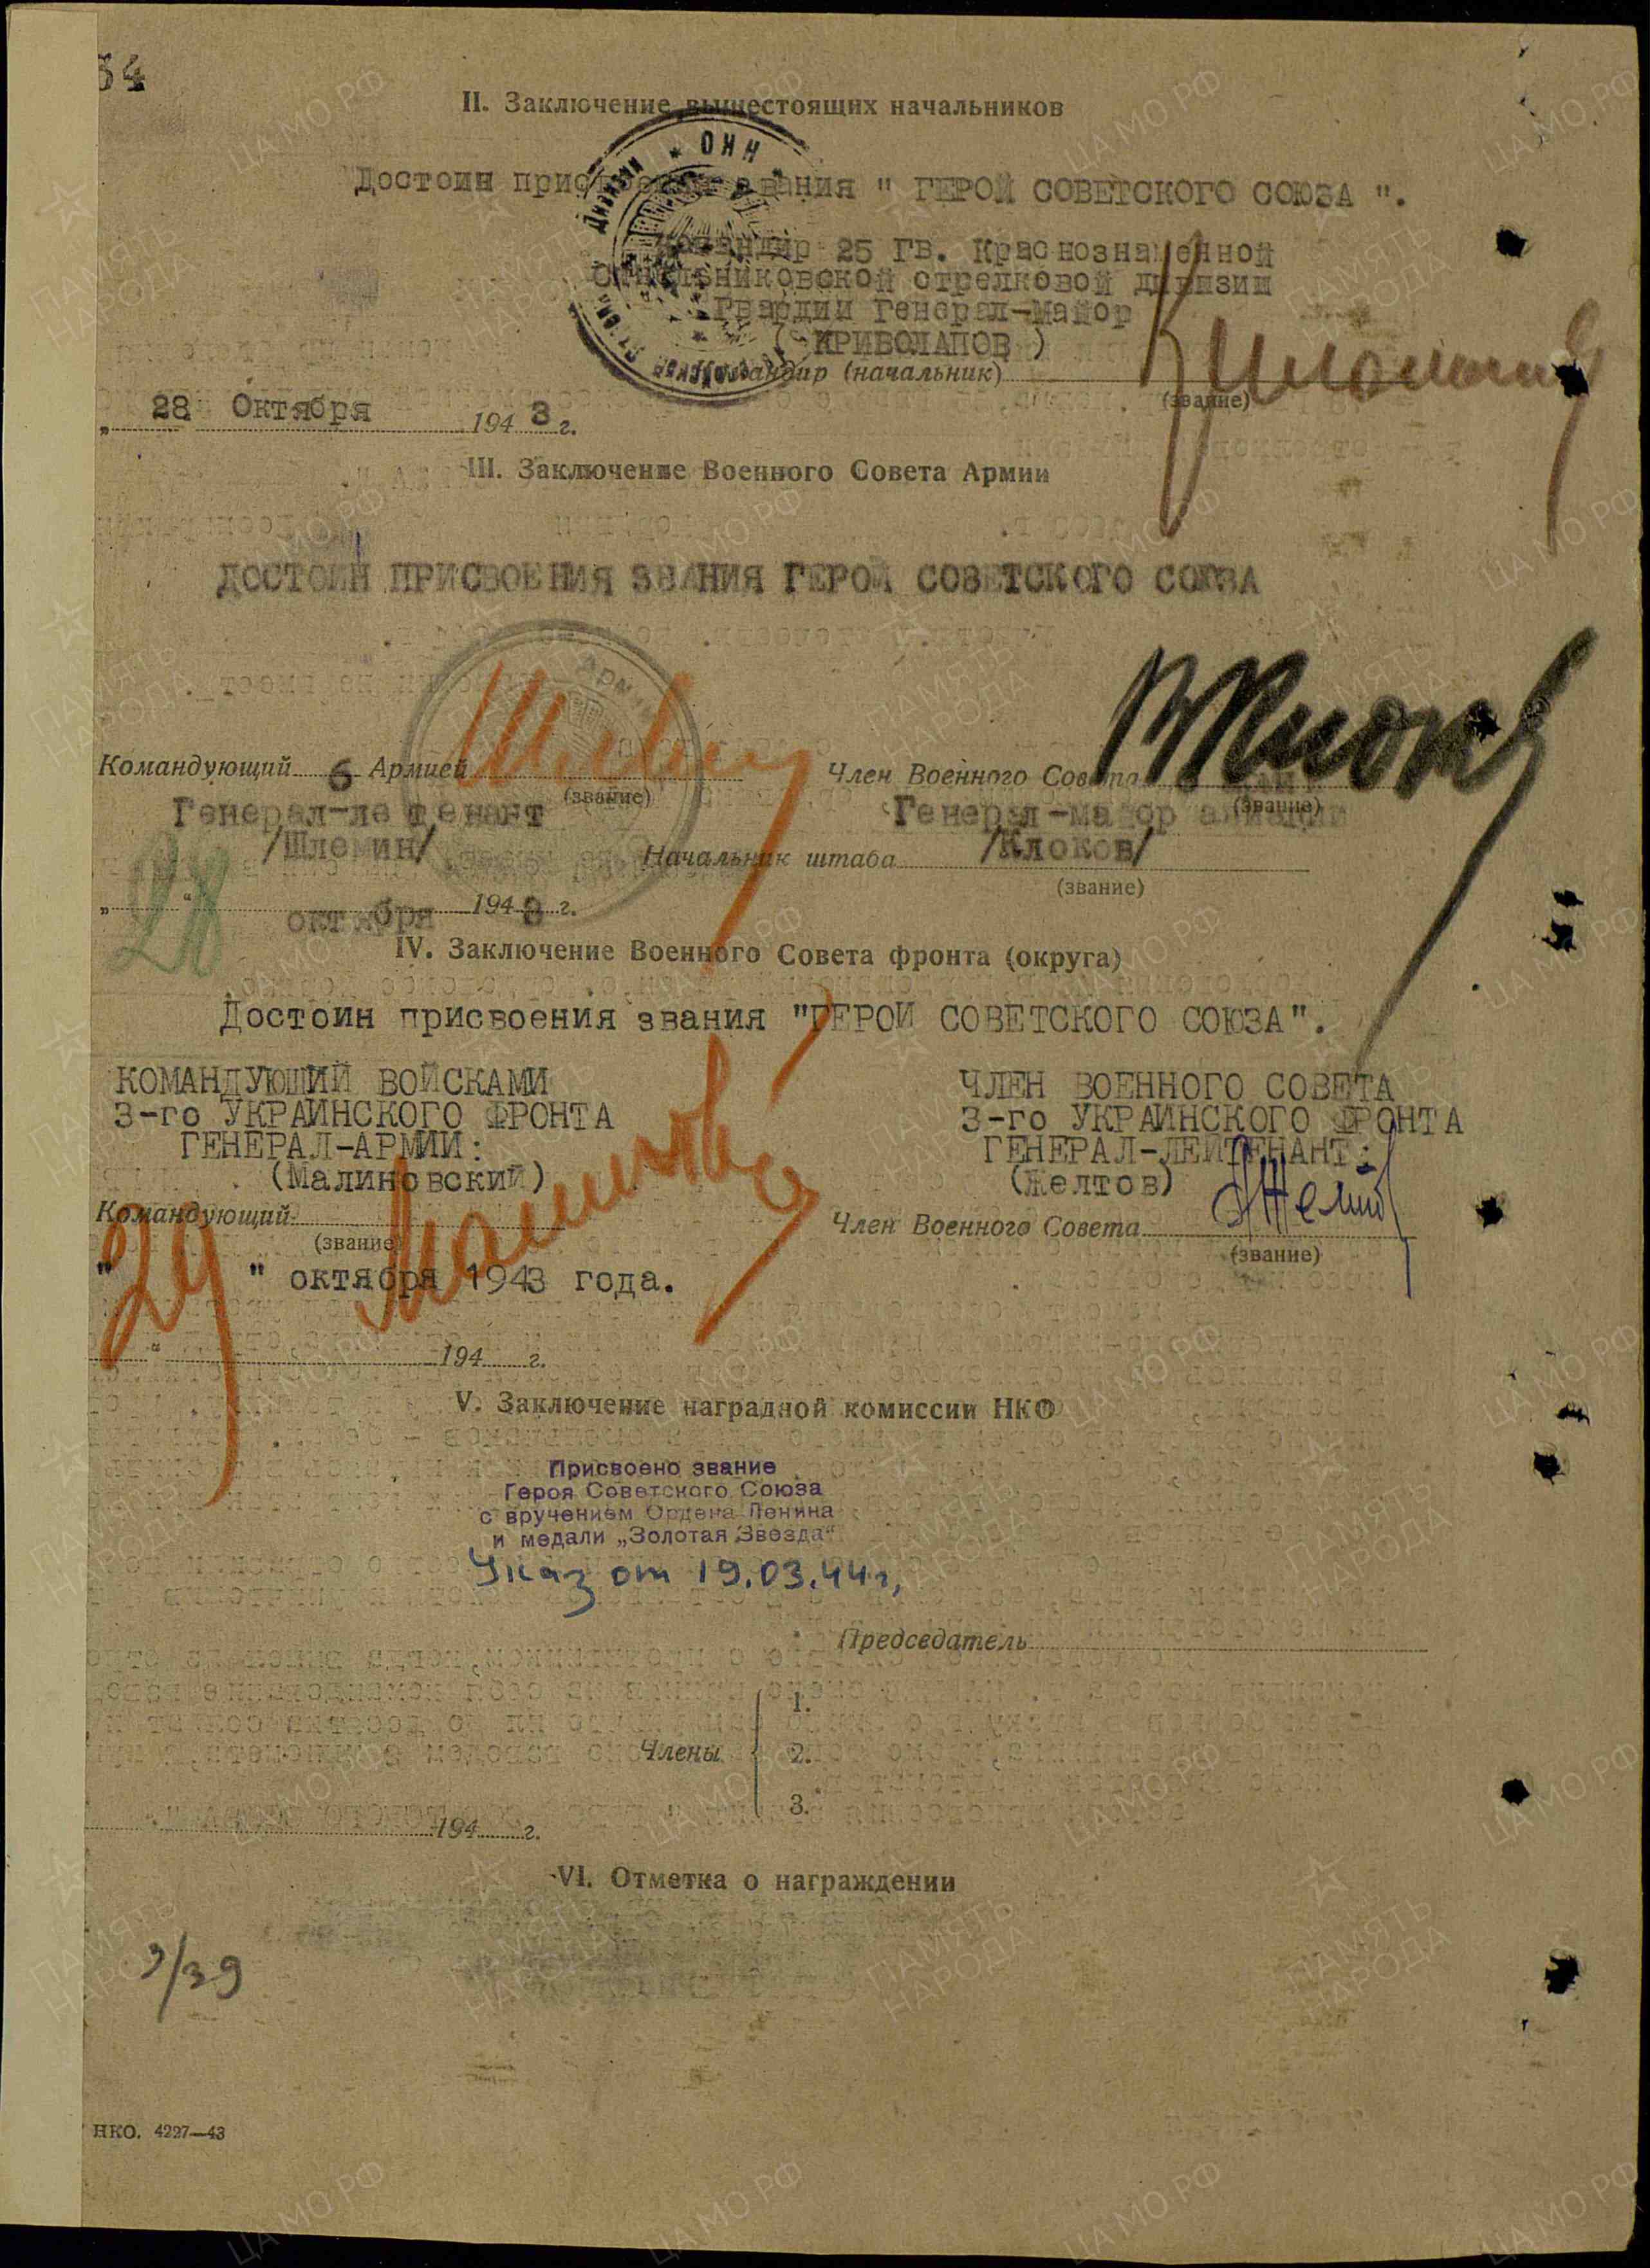 34
II. Заключение вышестоящих начальников
Достоин присвоения звания " ГЕРОЙ СОВЕТСКОГО СОЮЗА ".
Командир 25 Гв. Краснознаменной
Синельниковской стрелковой дивизии
Гвардии Генерал-майор
( КРИВОЛАПОВ )
Командир (начальник)
(звание)
„ 28 Октября 1943 г.
III. Заключение Военного Совета Армии
ДОСТОИН ПРИСВОЕНИЯ ЗВАНИЯ ГЕРОЙ СОВЕТСКОГО СОЮЗА
Командующий 6 Армией
Член Военного Совета 6
(звание)
(звание)
Генерал-лейтенант
Генерал-майор авиации
/Шлемин/
/Клоков/
Начальник штаба
(звание)
„ 28 “ октября 1943 г.
IV. Заключение Военного Совета фронта (округа)
Достоин присвоения звания "ГЕРОЙ СОВЕТСКОГО СОЮЗА".
КОМАНДУЮЩИЙ ВОЙСКАМИ
3-го УКРАИНСКОГО ФРОНТА
ГЕНЕРАЛ-АРМИИ:
(Малиновский)
ЧЛЕН ВОЕННОГО СОВЕТА
3-го УКРАИНСКОГО ФРОНТА
ГЕНЕРАЛ-ЛЕЙТЕНАНТ:
(Желтов)
Командующий
(звание)
Член Военного Совета
(звание)
" 29 " октября 1943 года.
“ 194 г.
V. Заключение наградной комиссии НКО
Присвоено звание
Героя Советского Союза
с вручением Ордена Ленина
и медали „Золотая Звезда“
Указ от 19.03.44г,
Председатель
1.
Члены 2.
3.
194 г.
VI. Отметка о награждении
3/39
НКО. 4227—43